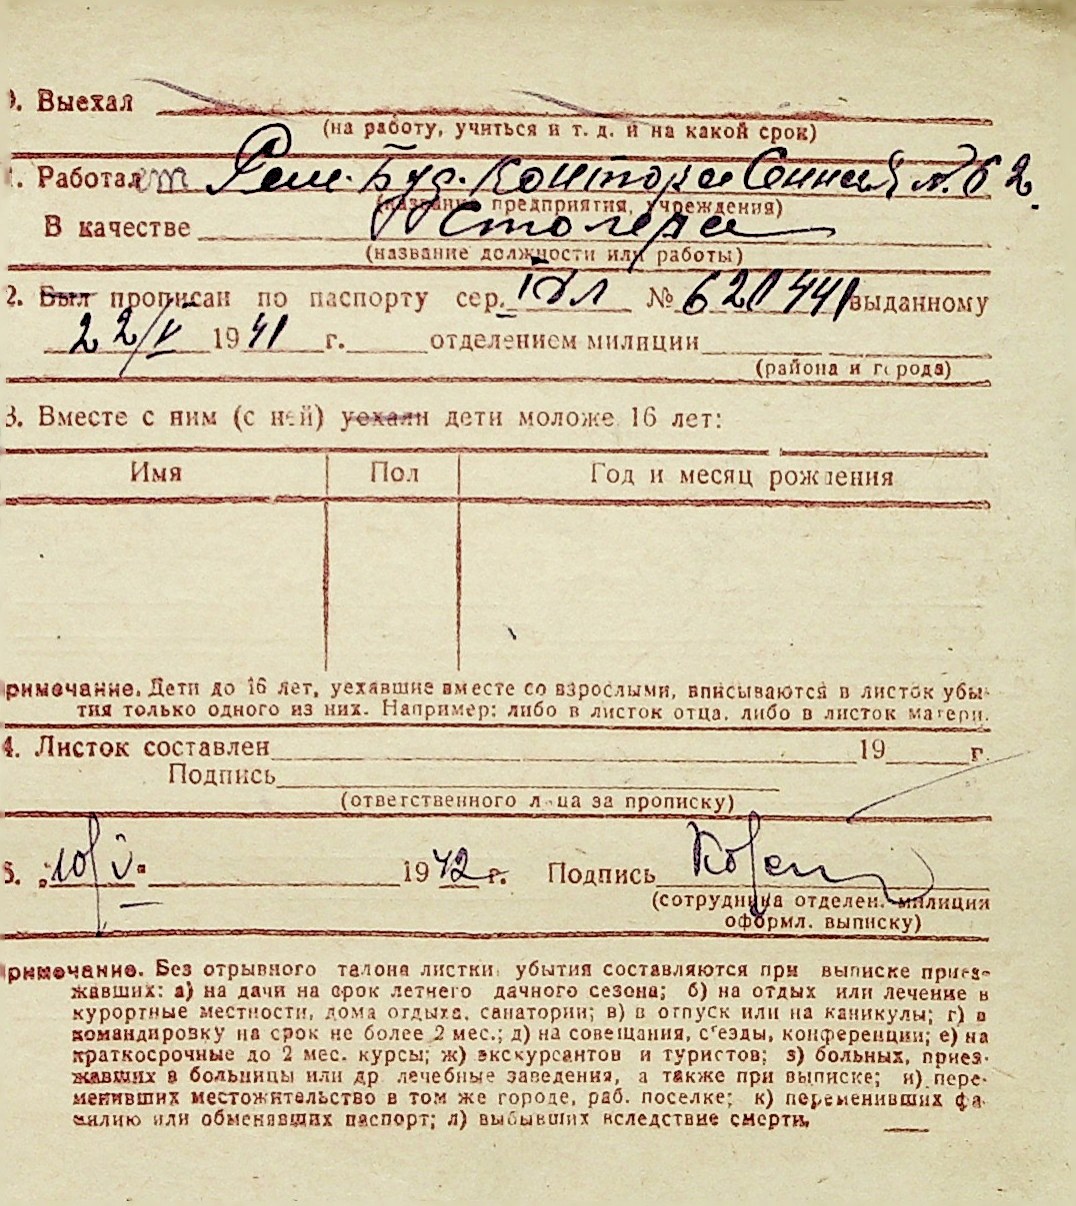 0. Выехал
(на работу, учиться и т. д. и на какой срок)
1. Работает Рем. Буд. Контора Сенная п. 6 2.
(название предприятия, учреждения)
В качестве Столера
(название должности или работы)
2. Был прописан по паспорту сер. № 621441 выданному
22/V 1941 г. отделением милиции
(района и города)
3. Вместе с ним (с ней) уехали дети моложе 16 лет:
Имя Пол Год и месяц рождения
римечание. Дети до 16 лет, уехавшие вместе со взрослыми, вписываются в листок убы-
тия только одного из них. Например: либо в листок отца, либо в листок матери.
4. Листок составлен 19 г.
Подпись
(ответственного лица за прописку)
5. „10/V" 1942 г. Подпись
(сотрудника отделен. милиция
оформл. выписку)
римечание. Без отрывного талона листки убытия составляются при выписке приез-
жавших: а) на дачи на срок летнего дачного сезона; б) на отдых или лечение в
курортные местности, дома отдыха, санатории; в) в отпуск или на каникулы; г) в
командировку на срок не более 2 мес.; д) на совещания, с'езды, конференции; е) на
краткосрочные до 2 мес. курсы; ж) экскурсантов и туристов; з) больных, приез-
жавших в больницы или др лечебные заведения, а также при выписке; и) пере-
менивших местожительство в том же городе, раб. поселке; к) переменивших фа-
милию или обменявших паспорт; л) выбывших вследствие смерти.